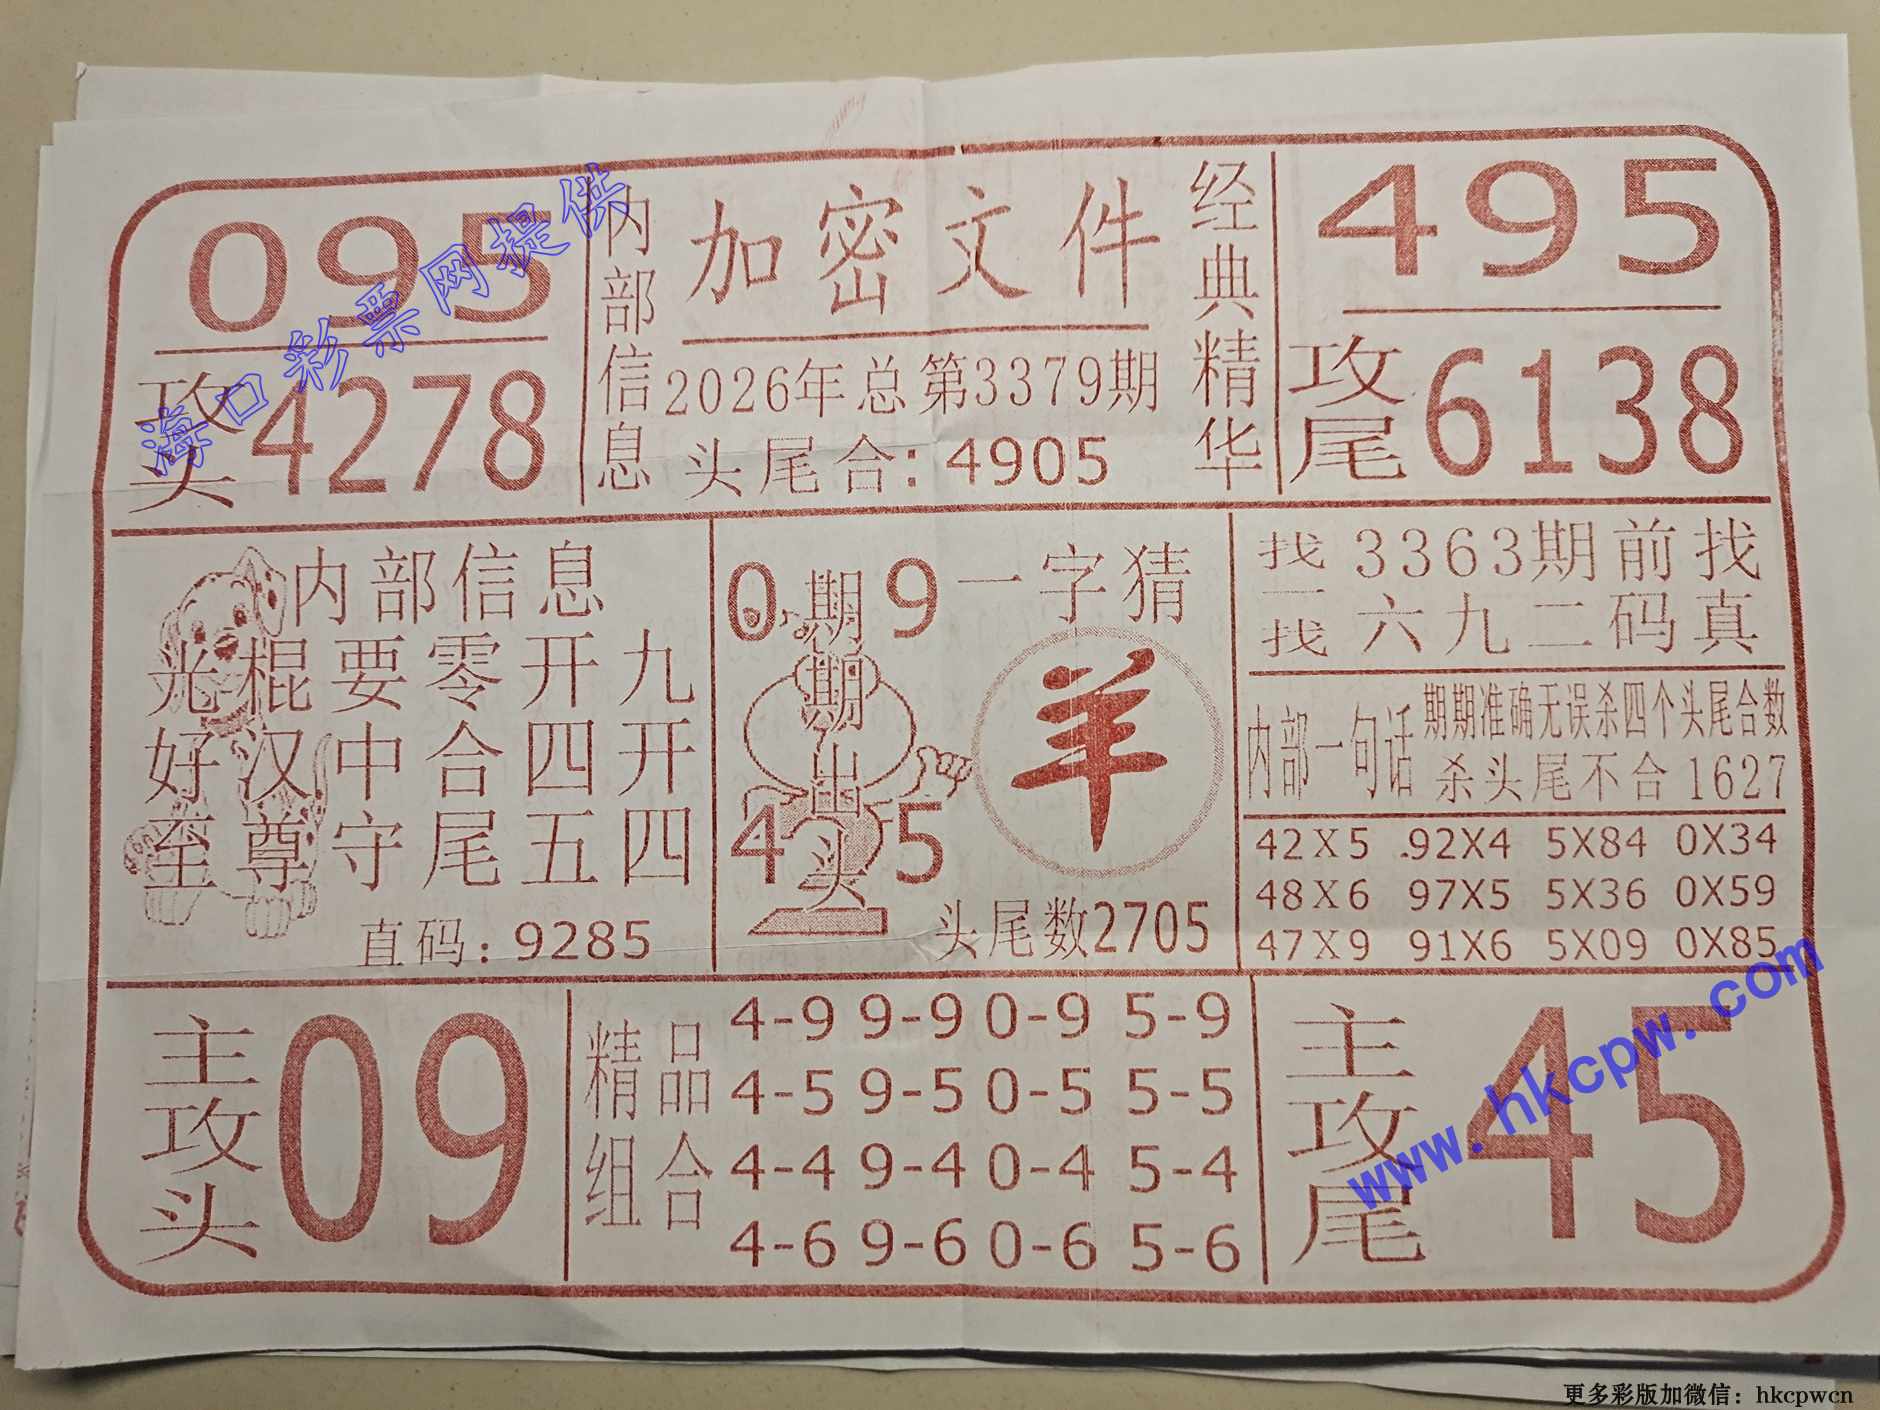 095
攻头 4278
内部信息
加密文件
2026年总第3379期
头尾合：4905
经典精华
495
攻尾 6138
内部信息
光棍要零开九
好汉中合四开
至尊守尾五四
直码：9285
0 9
期期出头
4 5
一字猜
羊
头尾数2705
找一找
3363期前找
六九二码真
内部一句话
期期准确无误杀四个头尾合数
杀头尾不合1627
42X5 92X4 5X84 0X34
48X6 97X5 5X36 0X59
47X9 91X6 5X09 0X85
主攻头 09
精品组合
4-9 9-9 0-9 5-9
4-5 9-5 0-5 5-5
4-4 9-4 0-4 5-4
4-6 9-6 0-6 5-6
主攻尾 45
海口彩票网提供
www.hkcpw.com
更多彩版加微信：hkcpwcn